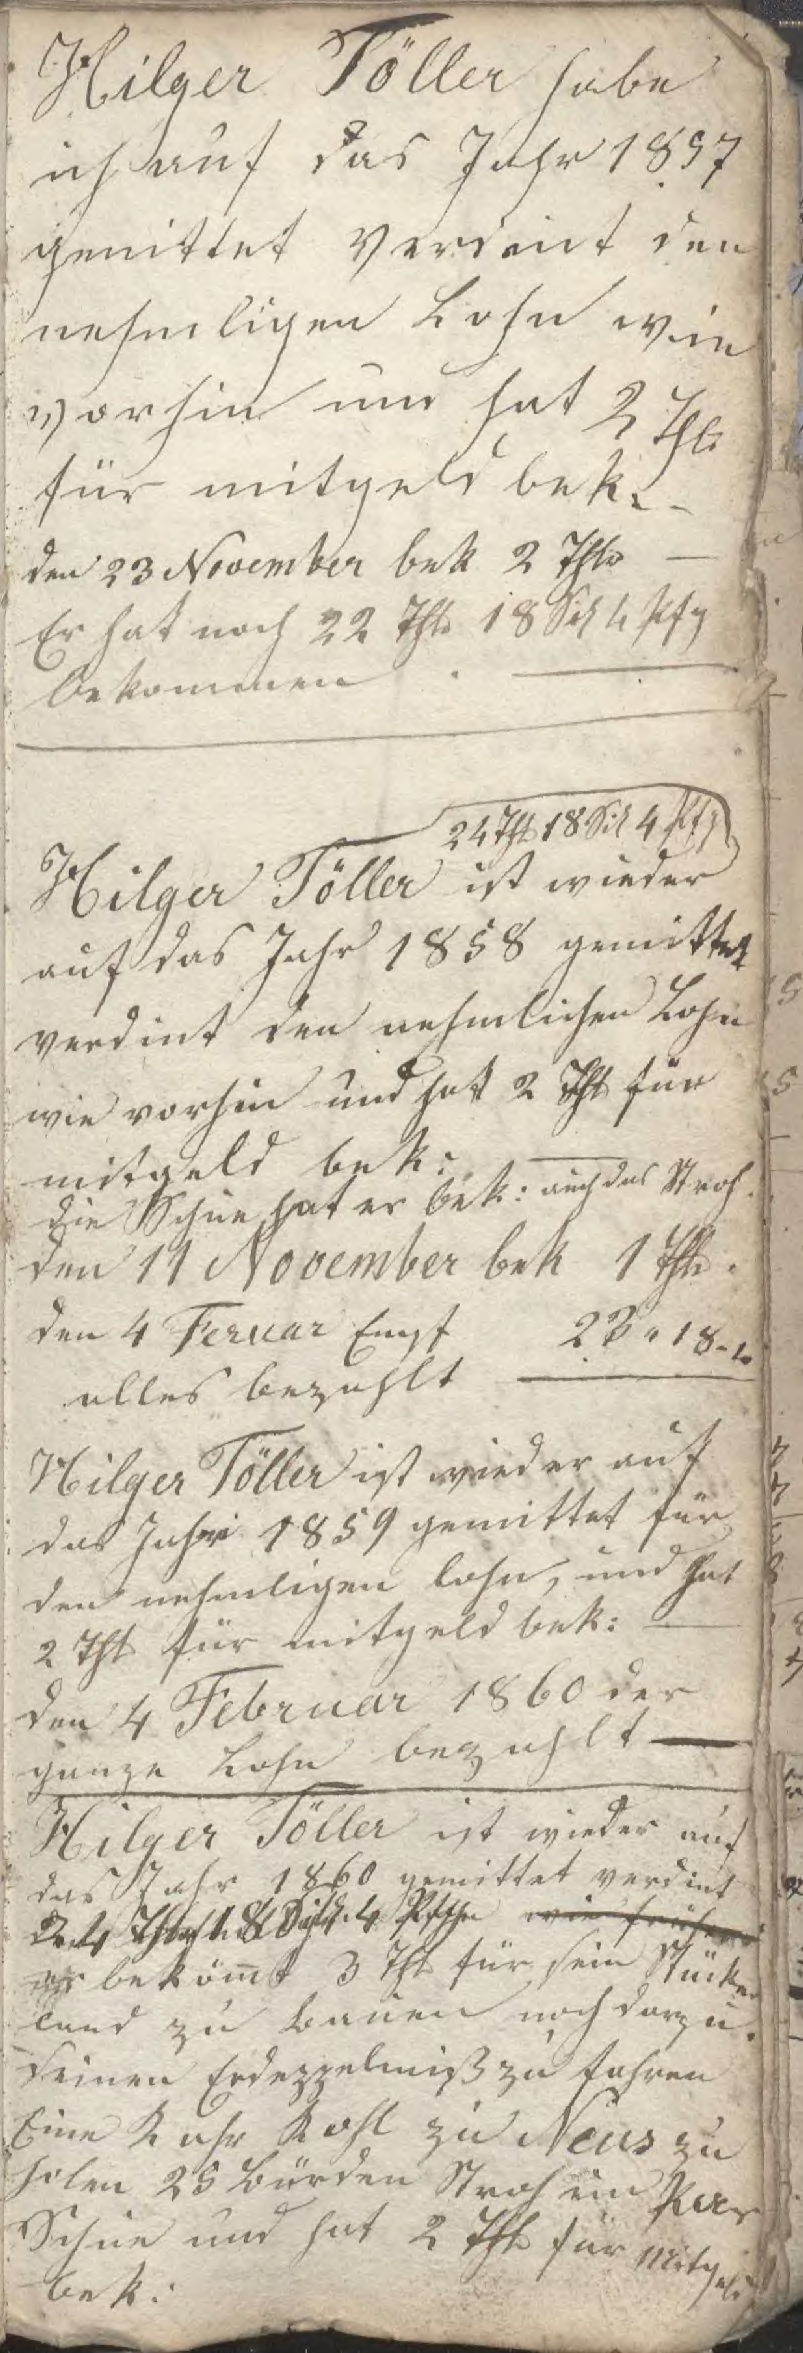 Hilger Töller habe
ich auf das Jahr 1857
gemittet verdint den
nehmligen Lohn wie
vorhin und hat 2 Thlr
für mitgeld bek:
den 23 November bek 2 Thlr —
Er hat noch 22 Thlr 18 Sil 4 Pfg
bekommen
24 Thlr 18 Sil 4 Pfg
Hilger Töller ist wieder
auf das Jahr 1858 gemittet
verdint den nehmlichen Lohn
wie vorhin und hat 2 Thlr für
mitgeld bek: —
die Schue hat er bek: auch das Stroh.
den 11 November bek 1 Thlr.
den 4 Feruar Empf 23 " 18 - 4
alles bezahlt
Hilger Töller ist wieder auf
das Jahr 1859 gemittet für
den nehmligen lohn, und hat
2 Thlr für mitgeld bek: —
den 4 Februar 1860 der
ganze Lohn bezahlt —
Hilger Töller ist wieder auf
das Jahr 1860 gemittet verdint
24 18 4 wie früher
er bekömt 3 Thlr für sein Stück
land zu bauen noch darzu.
seinen zu fahren
Eine Kahr Kohl zu Neus zu
holen 25 bürden Stroh ein Paar
Schue und hat 2 Thlr für Mitgeld
bek: